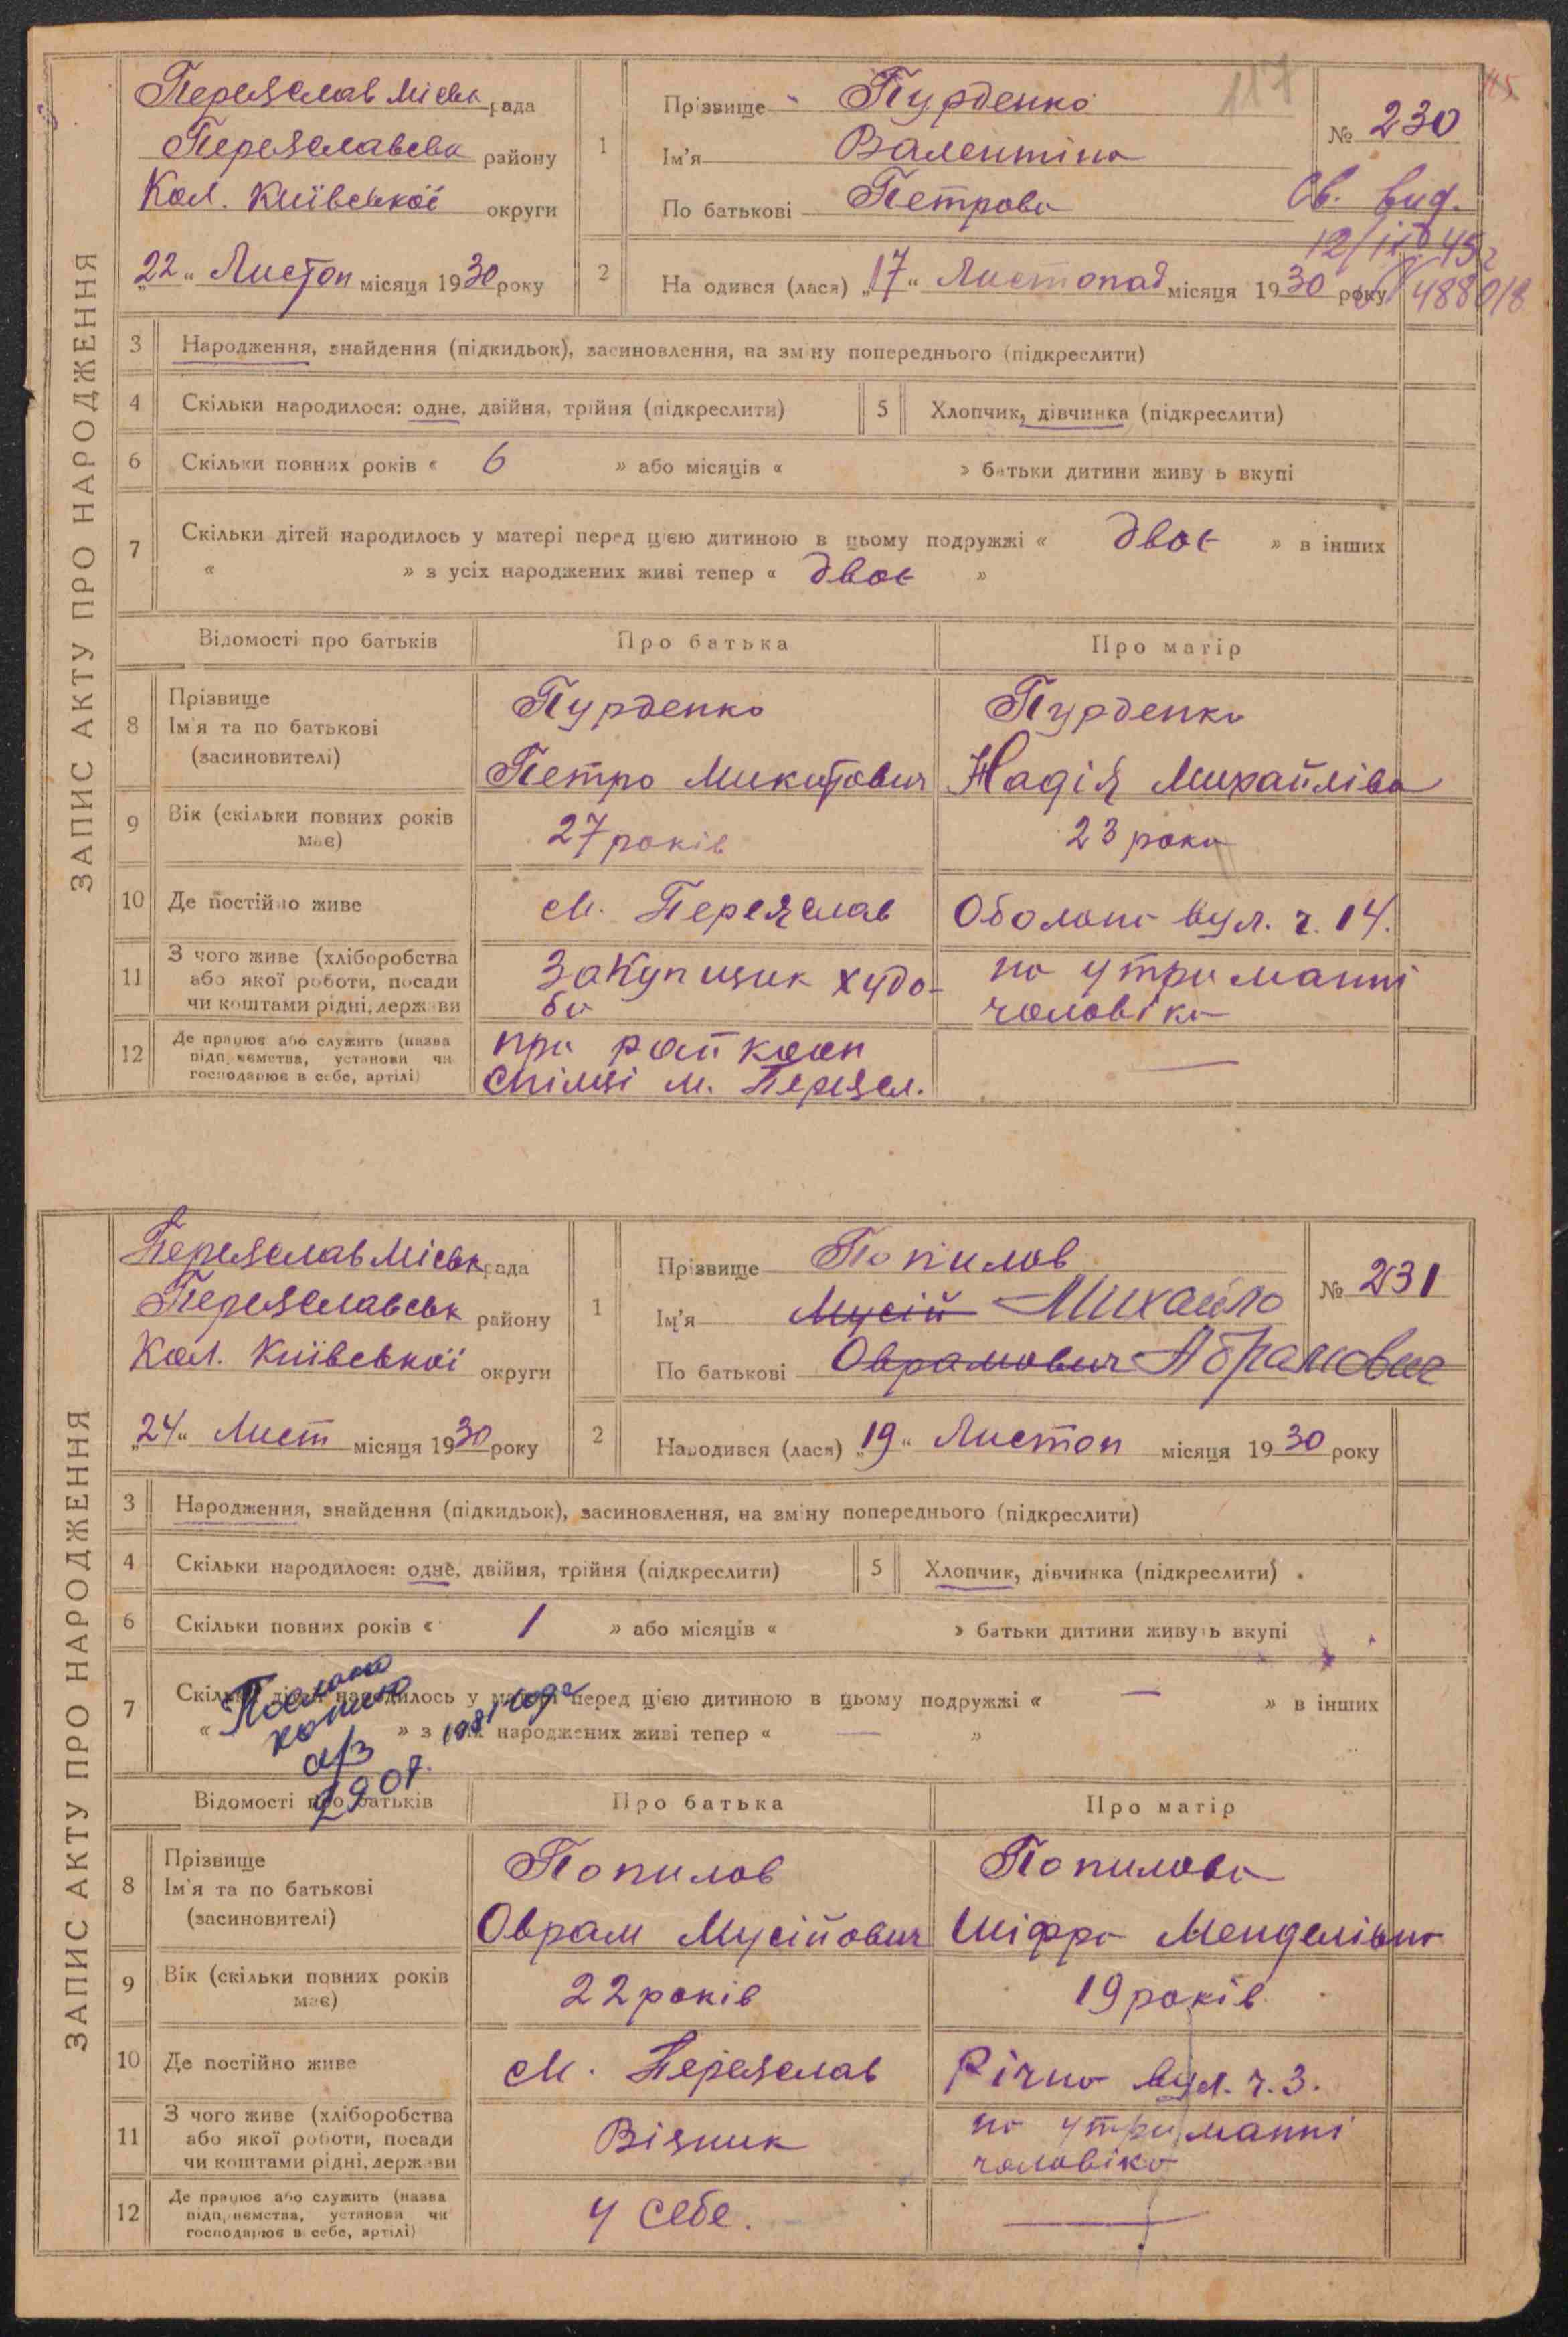 117
ЗАПИС АКТУ ПРО НАРОДЖЕННЯ
Переяслав Міськ рада
Переяславськ району
Кол. Київської округи
„22“ Листоп місяця 1930 року
1
Прізвище Пурденко
Ім'я Валентина
По батькові Петрова
№ 230
Св. выд.
2
На одився (лася) „17“ Листопад місяця 1930 року
3 Народження, знайдення (підкидьок), засиновлення, на зміну попереднього (підкреслити)
4 Скільки народилося: одне, двійня, трійня (підкреслити)
5 Хлопчик, дівчинка (підкреслити)
6 Скільки повних років « 6 » або місяців « » батьки дитини живу ь вкупі
7 Скільки дітей народилось у матері перед цією дитиною в цьому подружжі « двоє » в інших
« » з усіх народжених живі тепер « двоє »
Відомості про батьків
Про батька
Про матір
8 Прізвище
Ім'я та по батькові
(засиновителі)
Пурденко
Петро Микитович
Пурденко
Надія Михайліва
9 Вік (скільки повних років
має)
27 років
23 роки
10 Де постійно живе
м. Переяслав
Оболонь вул. ч. 14.
11 З чого живе (хліборобства
або якої роботи, посади
чи коштами рідні, держави
Закупщик худо-
би
на утриманні
чоловіка
12 Де працює або служить (назва
підприємства, установи чи
господарює в себе, артілі)
при райкооп
спілці м. Переясл.
—
ЗАПИС АКТУ ПРО НАРОДЖЕННЯ
Переяслав Міськ рада
Переяславськ району
Кол. Київської округи
„24“ Лист місяця 1930 року
1
Прізвище Попилов
Ім'я Мусій Михайло
По батькові Оврамович Абрамович
№ 231
2
Народився (лася) „19“ Листоп місяця 1930 року
3 Народження, знайдення (підкидьок), засиновлення, на зміну попереднього (підкреслити)
4 Скільки народилося: одне, двійня, трійня (підкреслити)
5 Хлопчик, дівчинка (підкреслити)
6 Скільки повних років « 1 » або місяців « » батьки дитини живуть вкупі
7 Скільки дітей народилось у матері перед цією дитиною в цьому подружжі « — » в інших
« » з усіх народжених живі тепер « — »
Відомості про батьків
Про батька
Про матір
8 Прізвище
Ім'я та по батькові
(засиновителі)
Попилов
Оврам Мусійович
Попилова
Шіфра Менделівна
9 Вік (скільки повних років
має)
22 років
19 років
10 Де постійно живе
м. Переяслав
Річна вул. ч. 3.
11 З чого живе (хліборобства
або якої роботи, посади
чи коштами рідні, держави
Візник
на утриманні
чоловіка
12 Де працює або служить (назва
підприємства, установи чи
господарює в себе, артілі)
у себе.
—